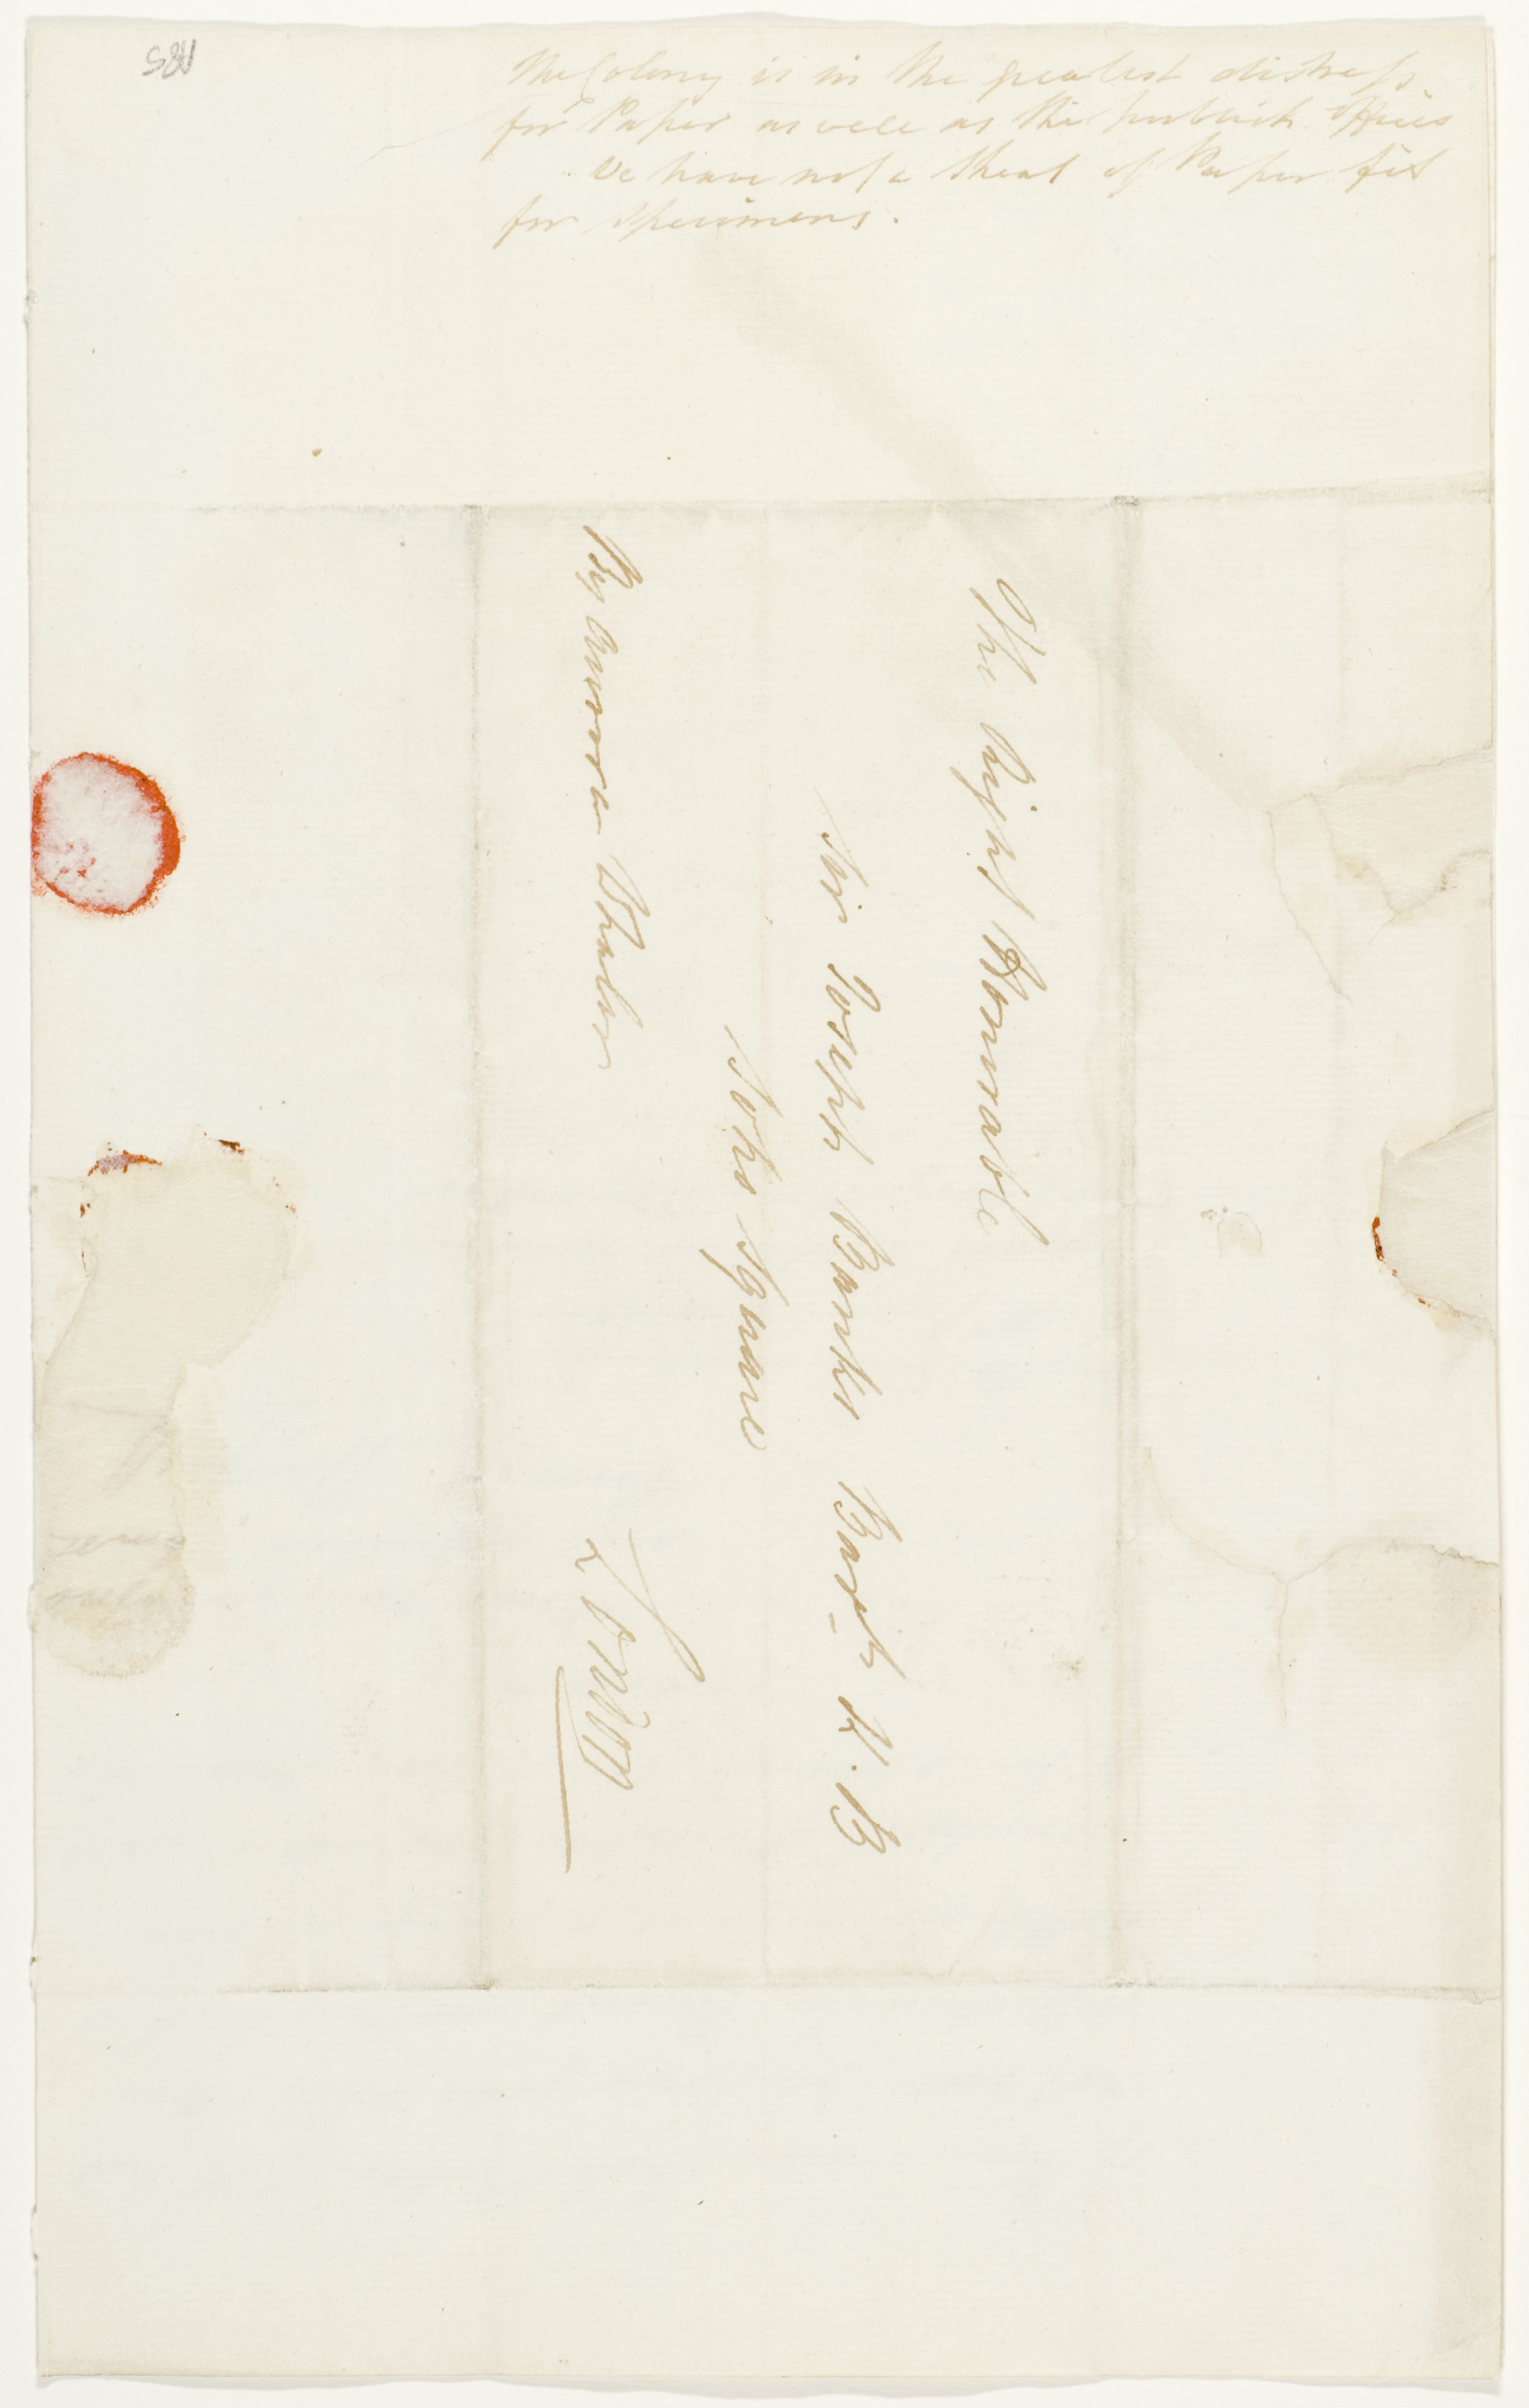 The Colony is in the greatest distress
for Paper as well as the publick Offices
We have not a Sheat of Paper fit
for Specimens.
The Right Honnrable
Sir Joseph Banks Bart. K. B
Soho Square
By Aurora Whaler
London